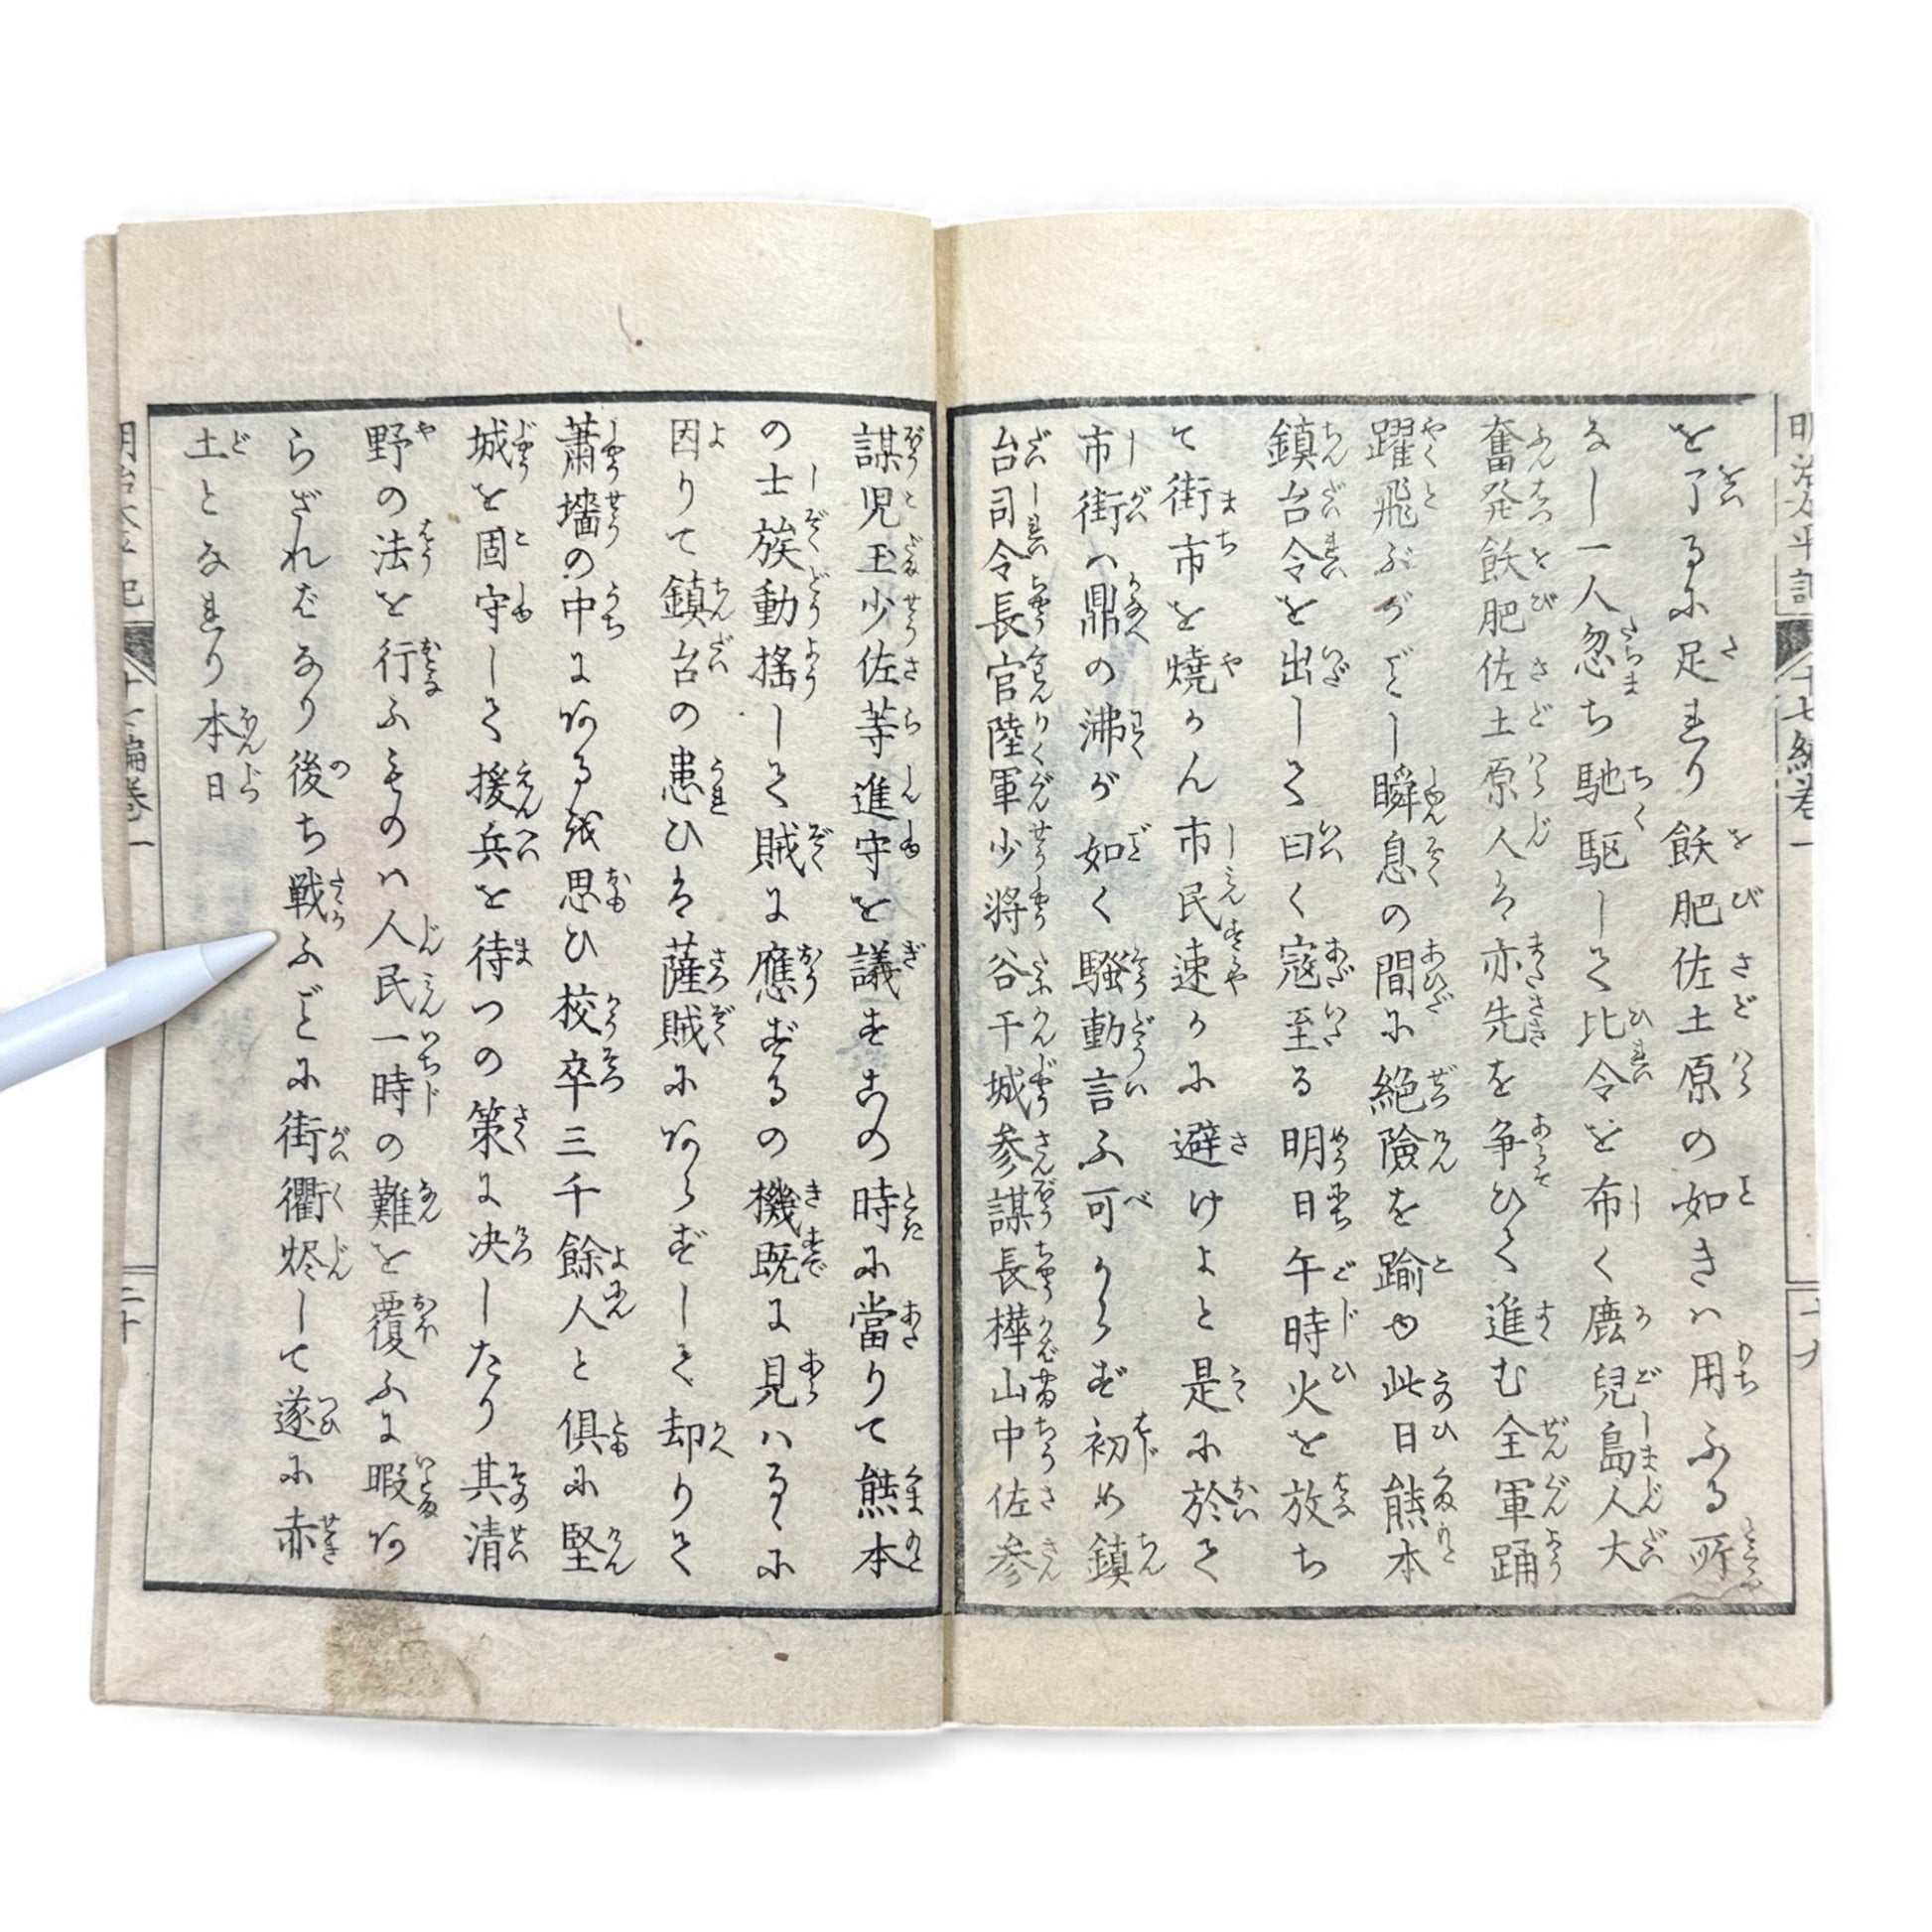 明治太平記
十七編巻一
十九
を了るに足れり飫肥佐土原の如きハ用ふる所
なし一人忽ち馳駆して比令を布く鹿兒島人大
奮発飫肥佐土原人は亦先を争ひて進む全軍踊
躍飛ぶがごとし瞬息の間に絶險を踰ゆ此日熊本
鎮台令を出して曰く寇至る明日午時火を放ち
て街市を燒かん市民速かに避けよと是に於て
市街ハ鼎の沸が如く騒動言ふ可からず初め鎮
台司令長官陸軍少將谷干城参謀長樺山中佐参
謀児玉少佐等進守を議す此の時に當りて熊本
の士族動揺して賊に應ずるの機既に見ハるゝに
因りて鎮台の患ひは薩賊にあらずして却りて
蕭墻の中にあるを思ひ校卒三千餘人と倶に堅
城を固守して援兵を待つの策に决したり其清
野の法を行ふものハ人民一時の難を覆ふに暇あ
らざれバなり後ち戦ふごとに街衢烬して遂に赤
土となれり本日
明治太平記
十七編巻一
二十